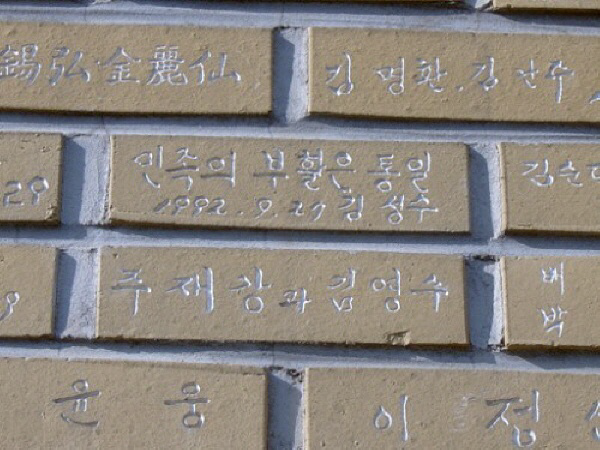 錫弘金麗仙
김명환.김난주
29
민족의 부활은 통일
1992.9.27 김성수
김순
9
주재상과김영수
박
윤웅
이정